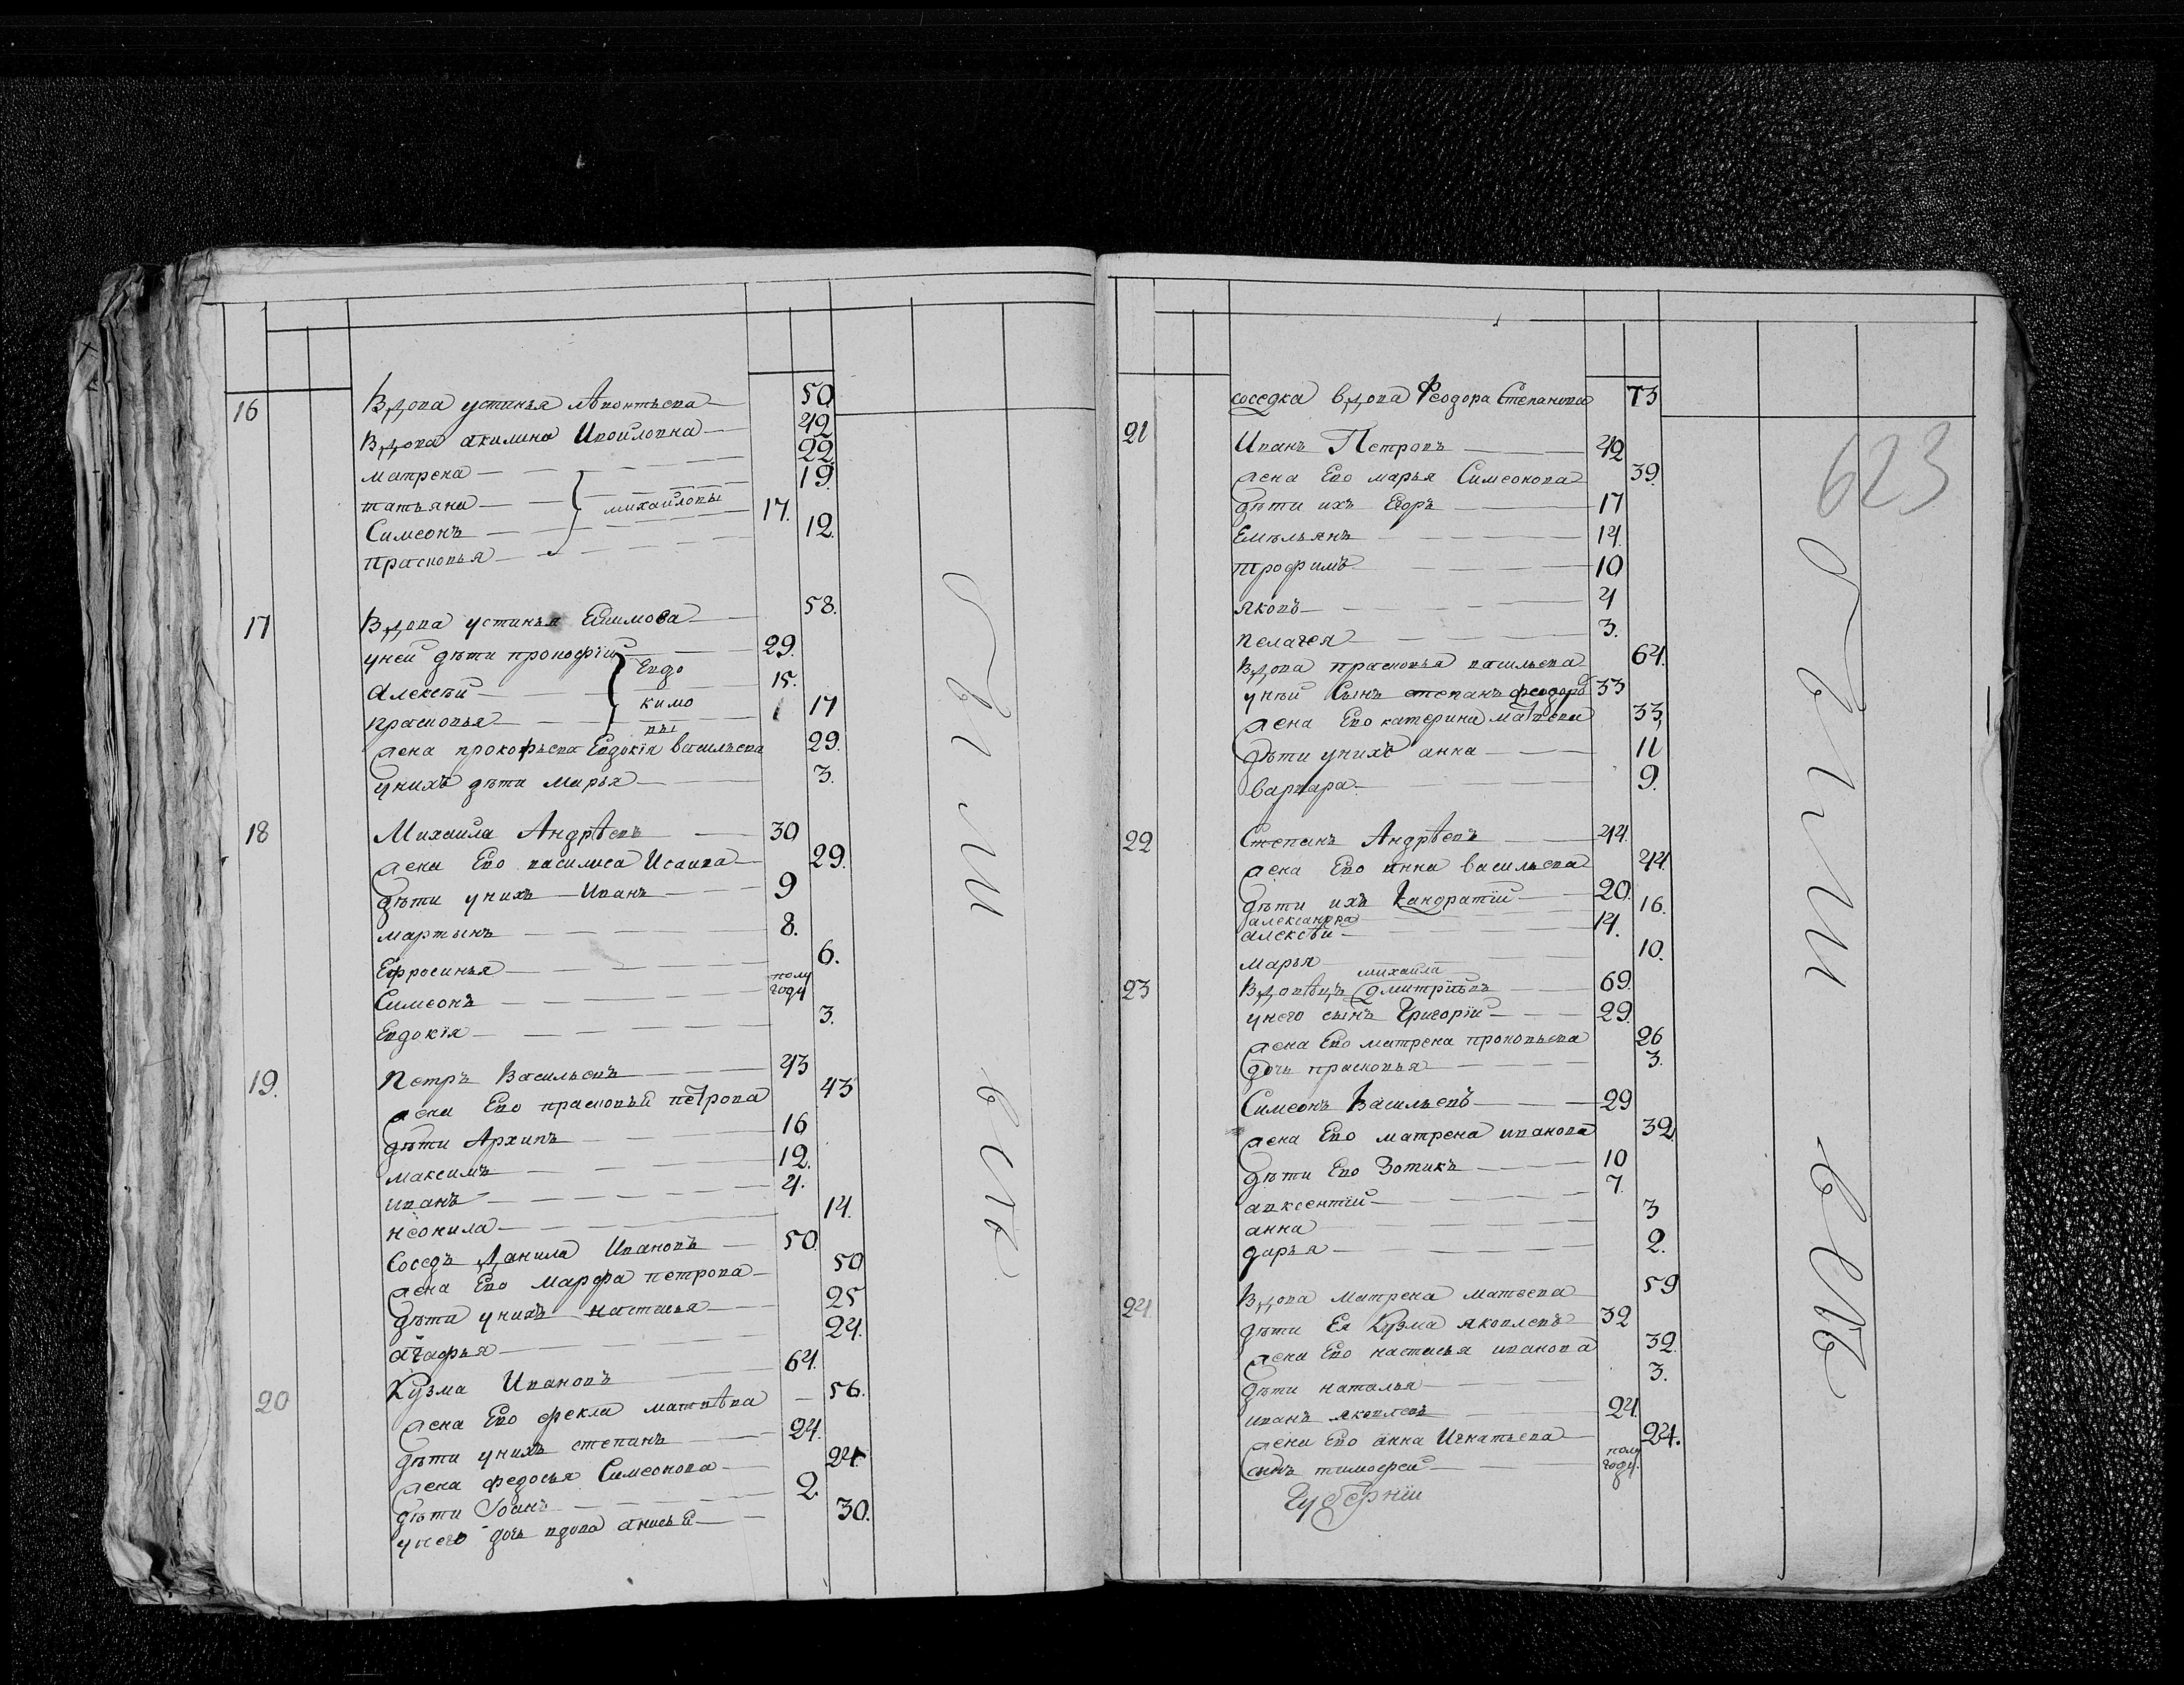 16 Вдова устинья лѣвонтьева 50
Вдова акилина Ивойловна 42
матрена 22
татьяна михаиловы 19
Симеонъ 17.
прасковья 12
17 Вдова устинья Евдимова 58.
уней дѣти прокофїй 29.
Евдо
Алексѣй 15.
кимо
прасковья 17
вы
жена прокофьева Евдокїя васильева 29.
унихъ дѣти марья 3.
18 Михаила Андрѣевъ 30
жена Ево василиса Исаива 29.
дѣти унихъ Иванъ 9
мартынъ 8.
Ефросинья 6.
Симеонъ полу году
Евдокїя 3.
19. Петръ Васильевъ 43
жена Ево прасковья петрова 43
дѣти Архипъ 16
максимъ 12.
иванъ 4.
неонила 14.
Соседъ Данила Ивановъ 50
жена Ево Марфа петрова 50
дѣти унихъ настасья 25
агафья 24.
20 Кузма Ивановъ 64.
жена Ево фекла матвѣва 56.
дѣти унихъ степанъ 24.
жена федосья Симеонова 24.
дѣти Іванъ 2
унего дочь вдова анисья 30.
были
всѣ
623
соседка вдова Феодора Степанова 73
21 Иванъ Петровъ 42
жена Ево марья Симеонова 39.
дѣти ихъ Егоръ 17
Емѣльянъ 14.
трофимъ 10
яковъ 4
пелагея 3.
вдова прасковья васильева 64.
унѣй Сынъ степанъ феодоръ 33
жена Ево катерина матвева 33,
дѣти унихъ анна 11
варвара 9.
22 Степанъ Андрѣевъ 44.
жена Ево анна васильева 44.
дѣти ихъ Кандратїй 20.
александра 16.
алексѣй 14.
марья 10.
михайла
23 Вдовѣцъ дмитрїевъ 69.
унего сынъ Григорїй 29.
жена Ево матрена прокопьева 26
дочь прасковья 3.
Симеонъ Васильевъ 29
жена Ево матрена иванова 32
дѣти Ево Зотикъ 10
авксентїй 7.
анна 3
дарья 2.
24. Вдова матрена матвева 59
дѣти Ея Кузма яковлевъ 32
жена Ево настасья иванова 32.
дѣти наталья 3.
иванъ яковлевъ 24.
жена Ево анна Игнатьева 24.
Сынъ тимофей полу году.
Губернїи
были
всѣ